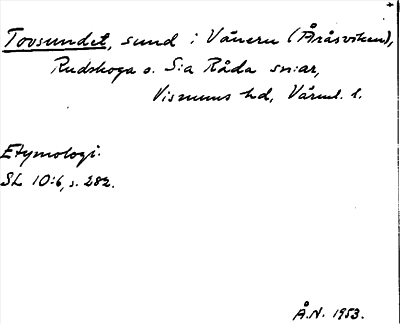 Tovsundet, sund i Vänern (Åråsviken),
Rudskoga o. S:a Råda sn:ar,
Visnums hd, Värml. l.
Etymologi:
SL 10:6, s. 282.
Å.N. 1953.